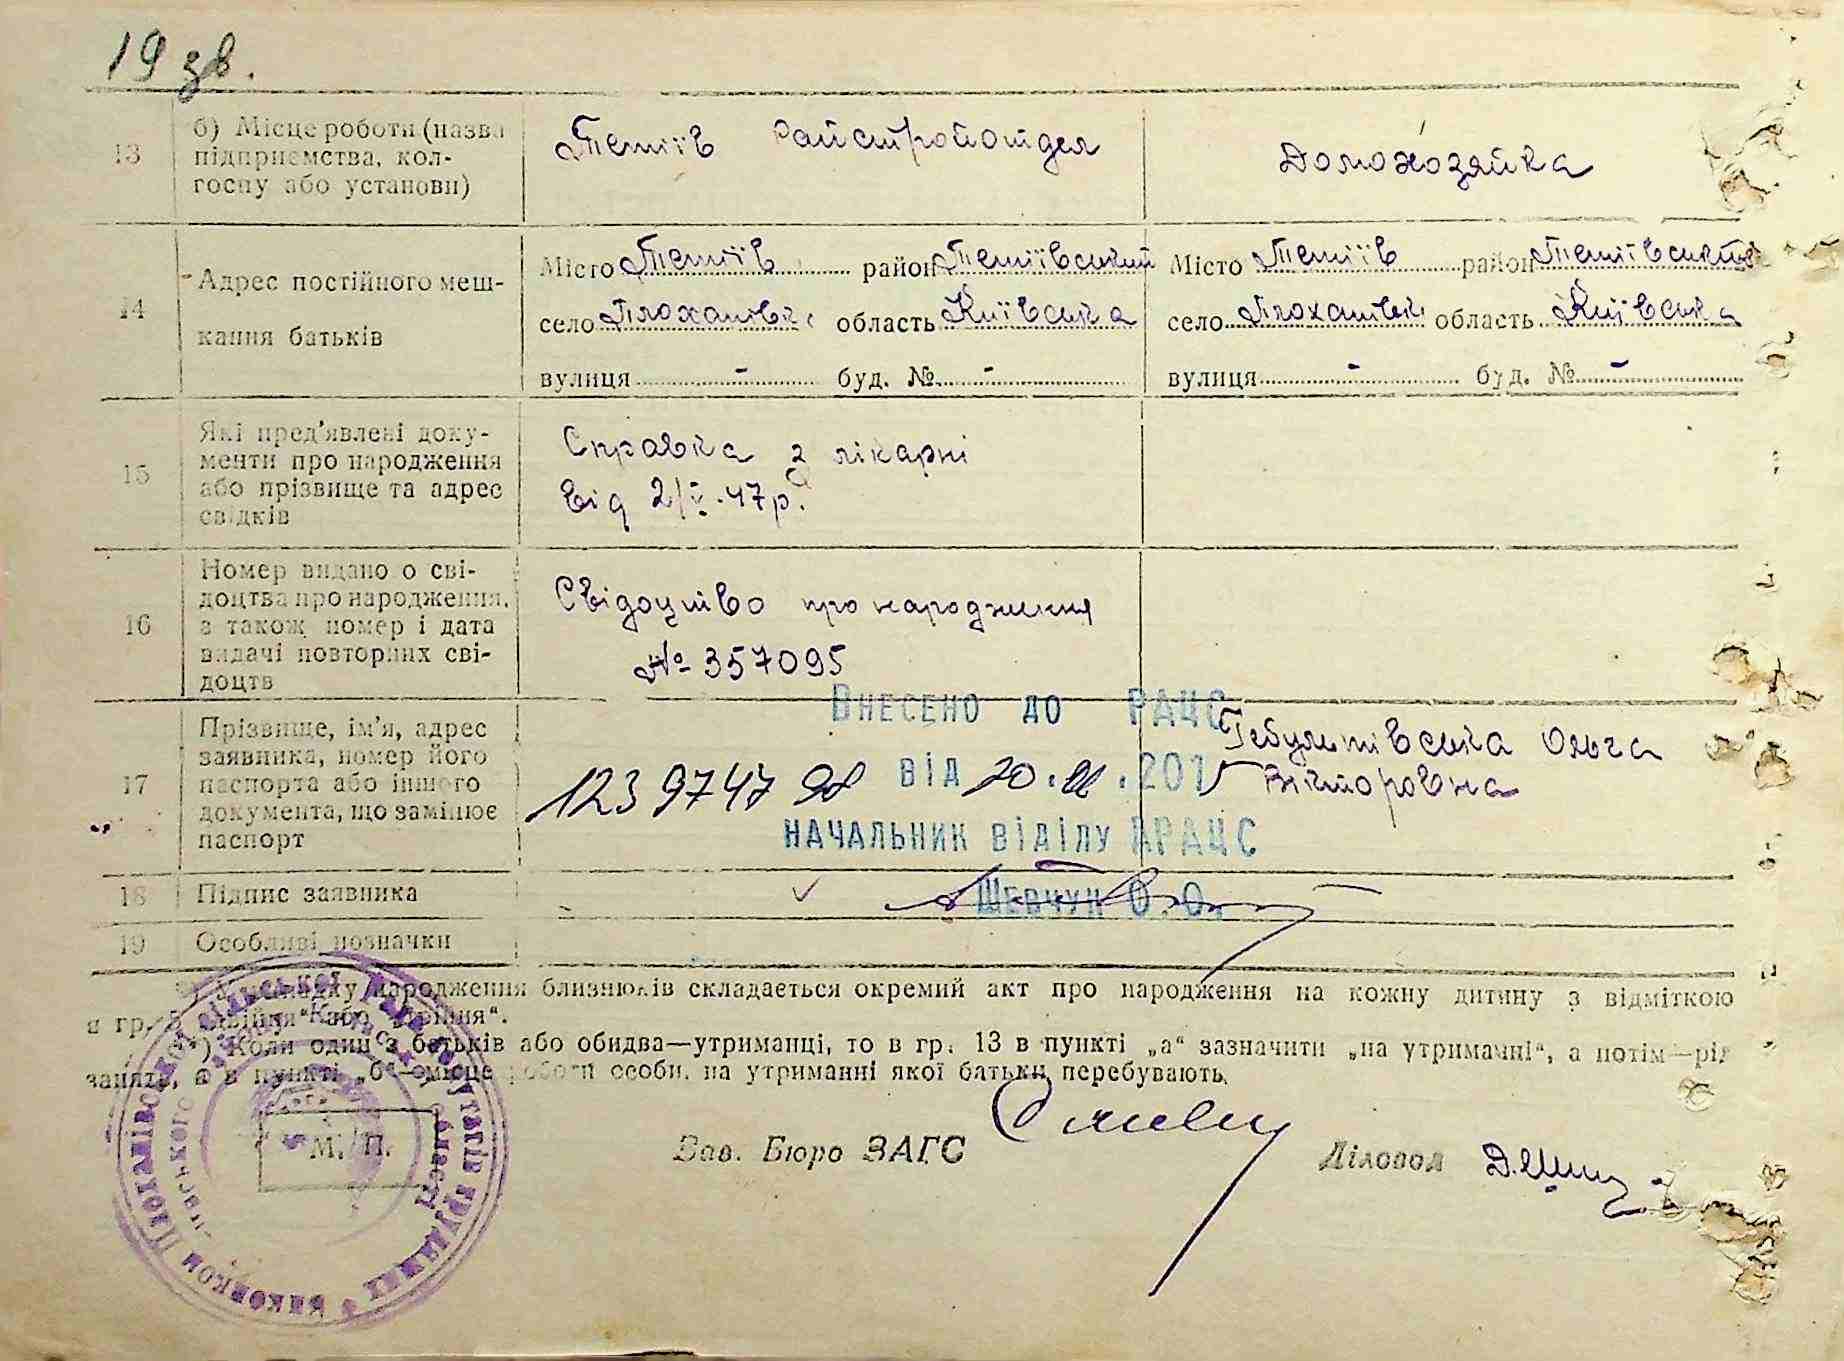 19 зв.
13
б) Місце роботи (назва
підприємства, кол-
госпу або установи)
Тетіїв Райстройотдел
Домохозяйка
14
Адрес постійного меш-
кання батьків
Місто Тетіїв район Тетіївський
село Плоханівк область Київська
вулиця - буд. № -
Місто Тетіїв район Тетіївський
село Плоханівк область Київська
вулиця - буд. № -
15
Які пред'явлені доку-
менти про народження
або прізвище та адрес
свідків
Справка з лікарні
від 2/V.47р.
16
Номер видано о сві-
доцтва про народження,
а також номер і дата
видачі повторних сві-
доцтв
Свідоцтво про народження
№ 357095
17
Прізвище, ім'я, адрес
заявника, номер його
паспорта або іншого
документа, що замінює
паспорт
Внесено до РАЦС
123974798 від 20. .2015
начальник відділу ДРАЦС
Шевчук О.О.
Ольга
Вікторовна
18
Підпис заявника
19
Особливі позначки
випадку народження близнюків складається окремий акт про народження на кожну дитину з відміткою
в гр. 5 „двійня" або „трійня".
**) Коли один з батьків або обидва—утриманці, то в гр. 13 в пункті „а" зазначити „на утриманні", а потім—рід
занять, а в пункті „б"—місце роботи особи, на утриманні якої батьки перебувають.
М. П.
Зав. Бюро ЗАГС
Діловод